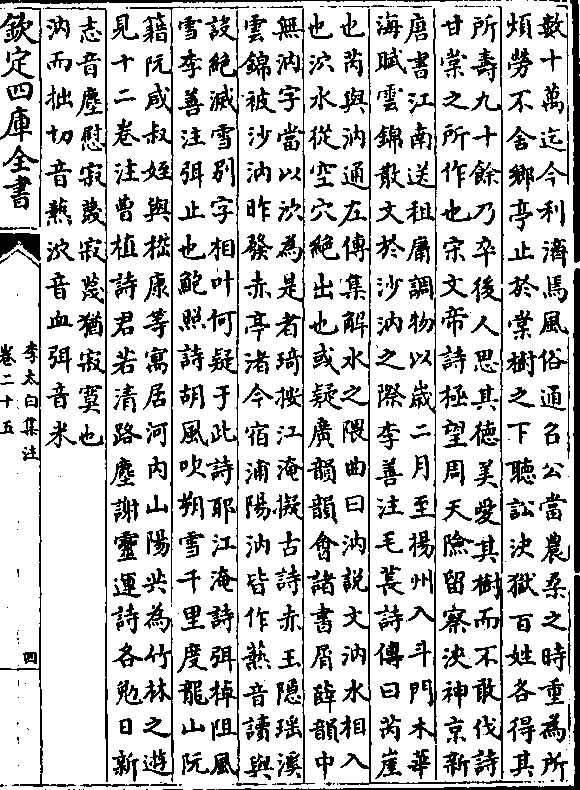 數十萬迄今利濟焉風俗通召公當農桑之時重為所
煩勞不舍鄉亭止於棠樹之下聽訟決獄百姓各得其
所壽九十餘乃卒後人思其德美愛其樹而不敢伐詩
甘棠之所作也宋文帝詩極望周天險留察浹神京新
唐書江南送租庸調物以歳二月至揚州入斗門木華
海賦雲錦散文於沙汭之際李善注毛萇詩傳曰芮崖
也芮與汭通左傳集解水之隈曲曰汭説文汭水相入
也泬水從空穴絶出也或疑廣韻韻㑹諸書屑薛韻中
無汭字當以泬為是者琦按江淹擬古詩赤玉隠瑶溪
雲錦被沙汭昨發赤亭渚今宿浦陽汭皆作爇音讀與
設絶滅雪别字相叶何疑于此詩耶江淹詩弭棹阻風
雪李善注弭止也鮑照詩胡風吹朔雪千里度龍山阮
籍阮咸叔姪與嵇康等寓居河内山陽共為竹林之遊
見十二卷注曹植詩君若清路塵謝靈運詩各勉日新
志音塵慰寂蔑寂蔑猶寂寞也
汭而拙切音爇泬音血弭音米
欽定四庫全書
李太白集注
卷二十五
四